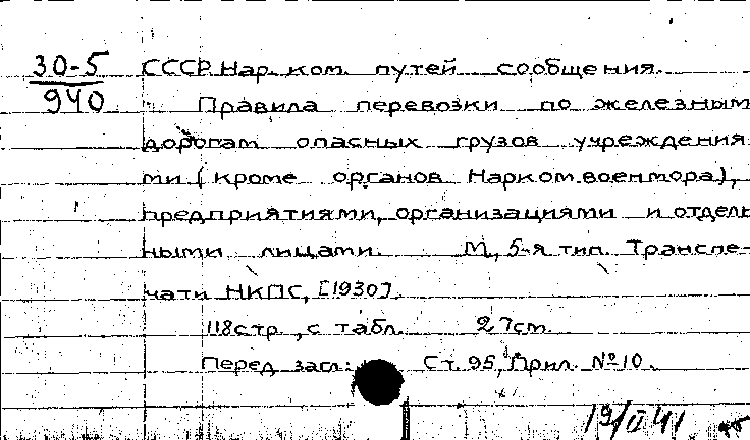 30-5
940
СССР. Нар. ком. путей сообщения.
Правила перевозки по железным
дорогам опасных грузов учреждения-
ми (кроме органов Наркомвоенмора),
предприятиями, организациями и отдель
ными лицами. М, 5-я тип. Транспе-
чати НКПС, [1930].
118стр., с табл. 27см.
Перед загл.: Ст. 95, Прил. №10.